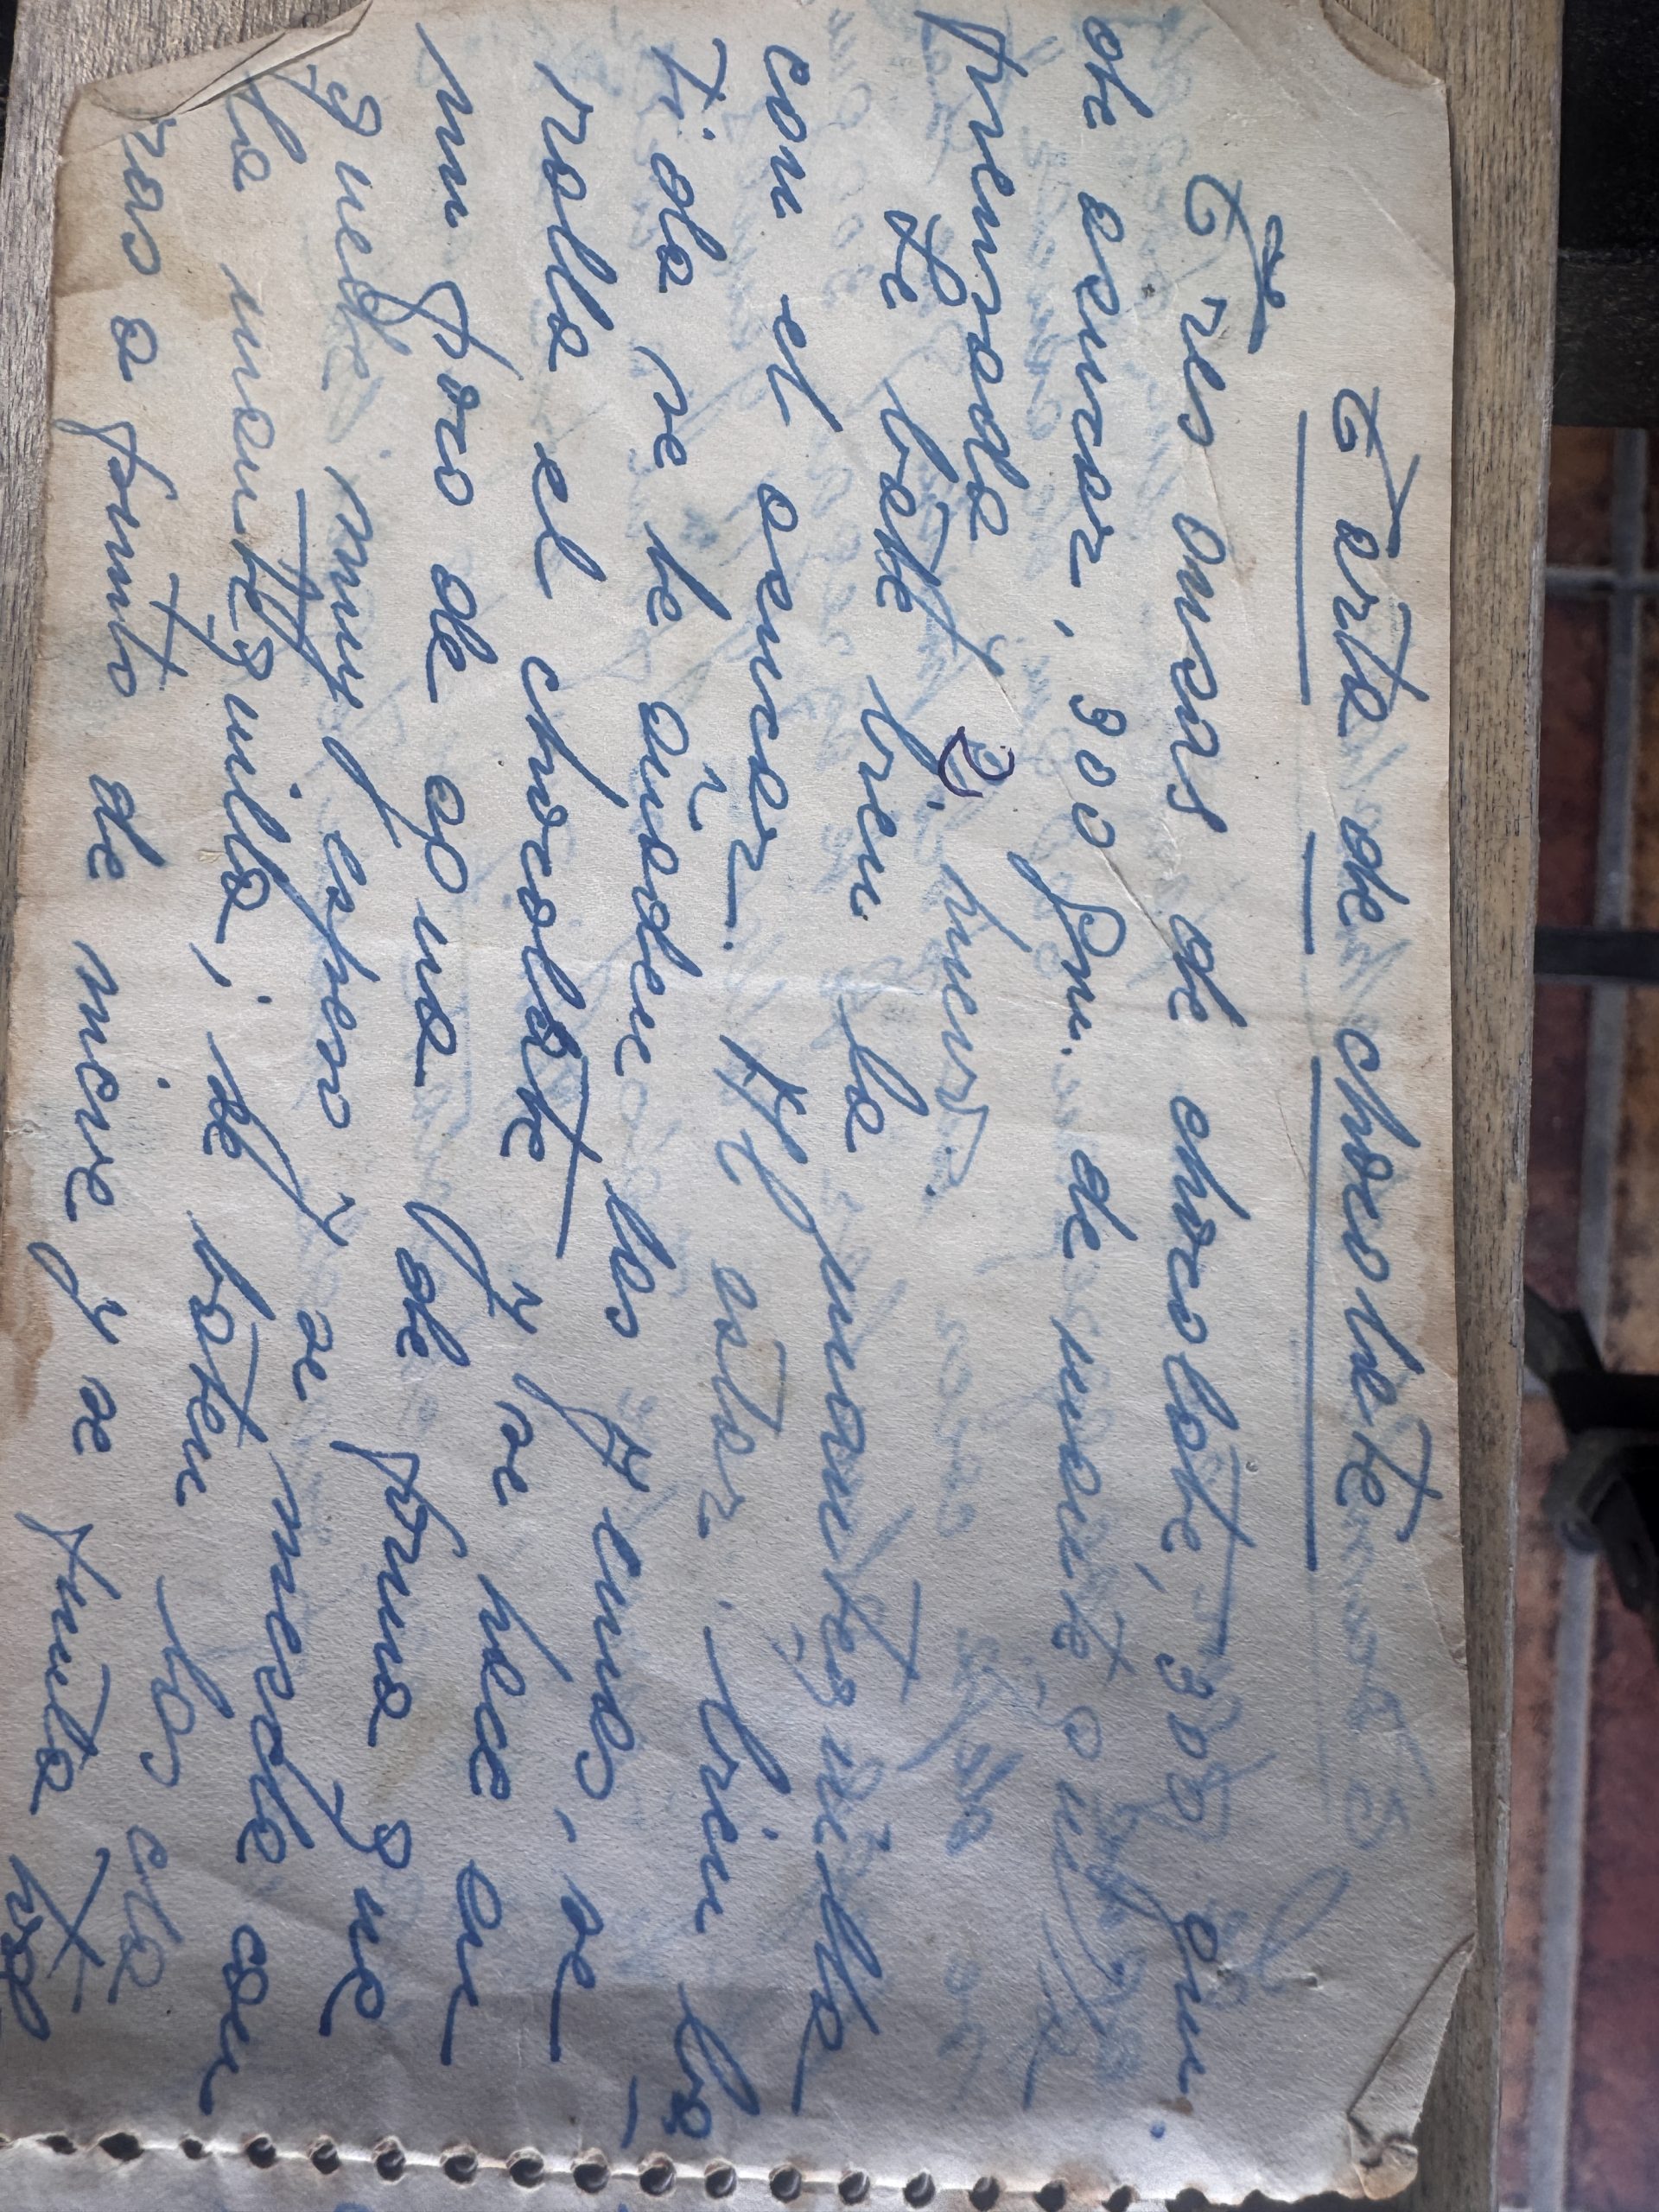 Tarta de chocolate
Tres onzas de chocolate, 300 gm.
de azucar, 300 gm. de mante quilla
prensada y 2 huevos.
Se bate bien la mantequilla
con el azucar. Al estar bien ba
tida se le añaden las yemas, se
ralla el chocolate y se hace en
un poco de agua de forma que
quede muy espeso y se mescle con
la mantequilla; se baten las cla
ras a punto de nieve y se junta tod